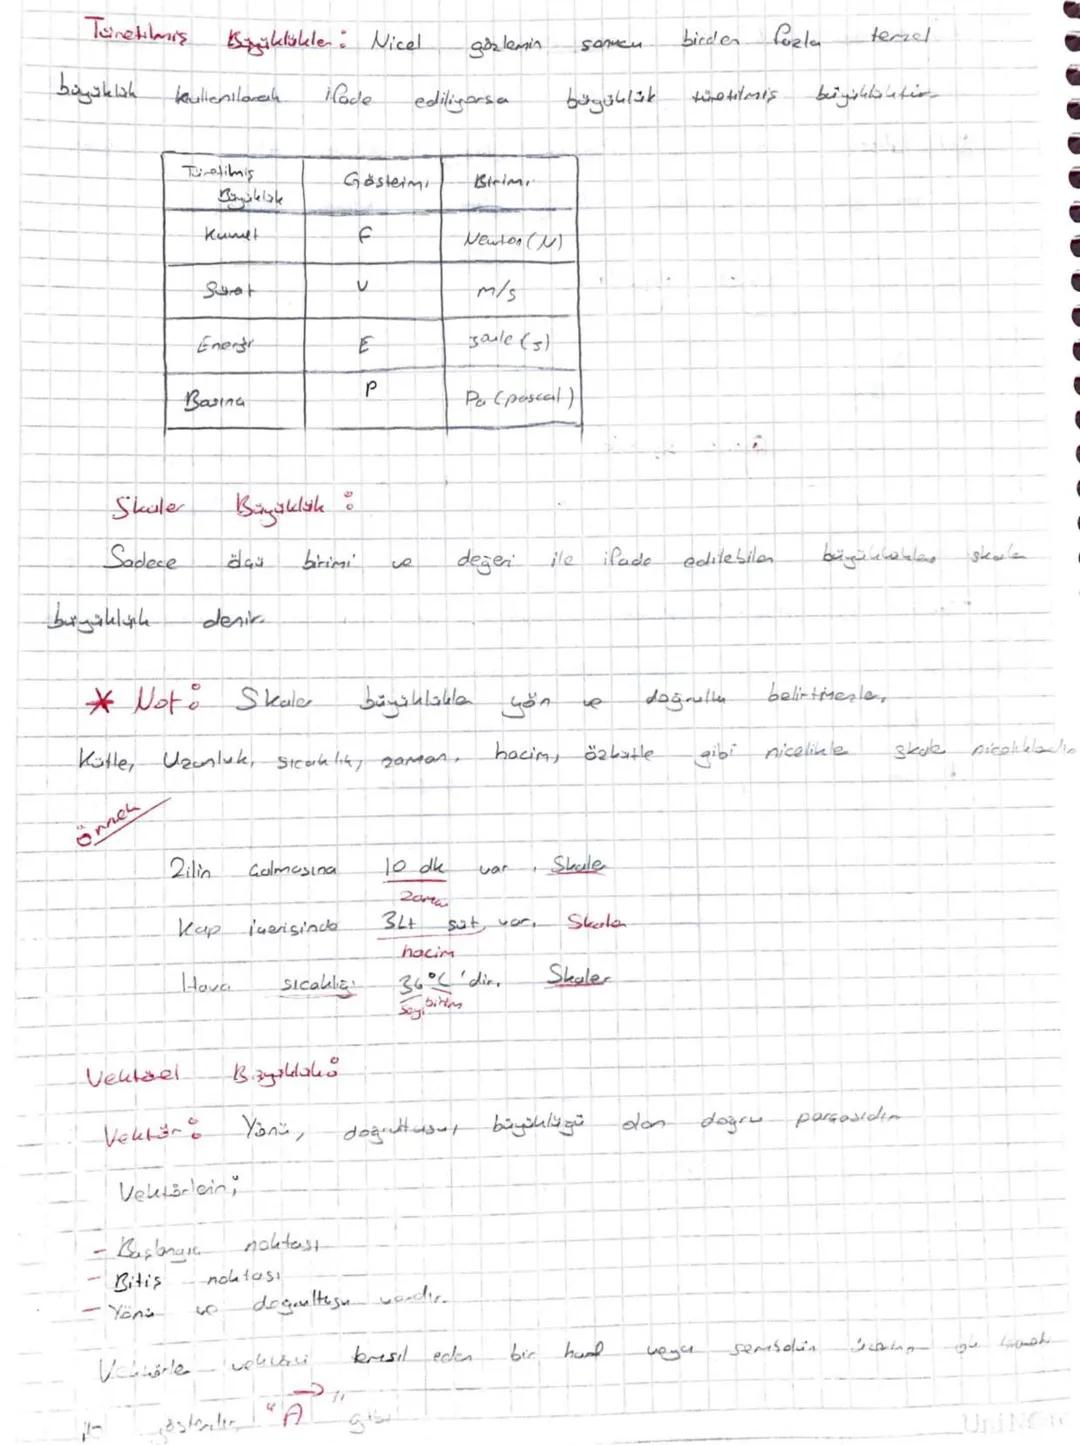 Türetilmiş Büyüklükler: Nicel gözlemin sonucu birden fazla temel
büyüklük kullanılarak ifade ediliyorsa büyüklük türetilmiş büyüklüktür.
Türetilmiş Büyüklük Gösterimi Birimi
Kuvvet F Newton (N)
Sürat V m/s
Enerji E joule (j)
Basınç P Pa (pascal)
Skaler Büyüklük:
Sadece ölçü birimi ve değeri ile ifade edilebilen büyüklüklere skaler
büyüklük denir.
* Not: Skaler büyüklükler yön ve doğrultu belirtmezler.
Kütle, Uzunluk, sıcaklık, zaman, hacim, özkütle gibi nicelikler skaler niceliklerdir
Örnek
Zilin çalmasına 10 dk var. Skaler
zaman
Kap içerisinde 3Lt süt var. Skaler
hacim
Hava sıcaklığı 36°C'dir. Skaler
sayı birim
Vektörel Büyüklük:
Vektör: Yönü, doğrultusu, büyüklüğü olan doğru parçasıdır
Vektörlerin;
- Başlangıç noktası
- Bitiş noktası
- Yönü ve doğrultusu vardır.
Vektörler vektörü temsil eden bir harf veya sembolün üzerine
gösterilir "A→" gibi